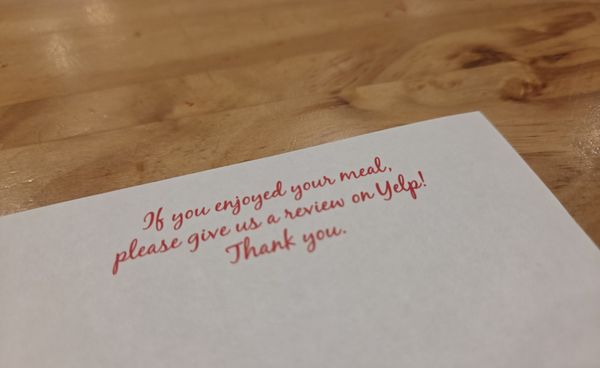 If you enjoyed your meal,
please give us a review on Yelp!
Thank you.